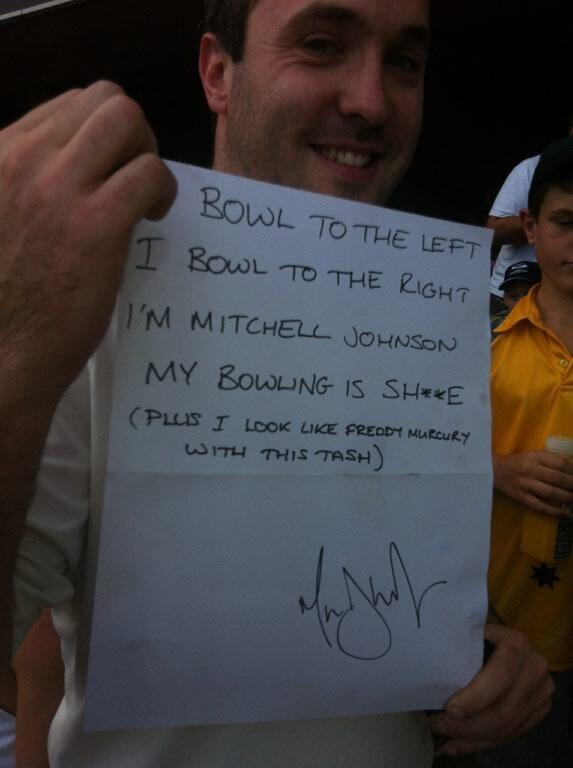 BOWL TO THE LEFT
I BOWL TO THE RIGHT
I'M MITCHELL JOHNSON
MY BOWLING IS SH**E
(PLUS I LOOK LIKE FREDDY MURCURY
WITH THIS TASH)